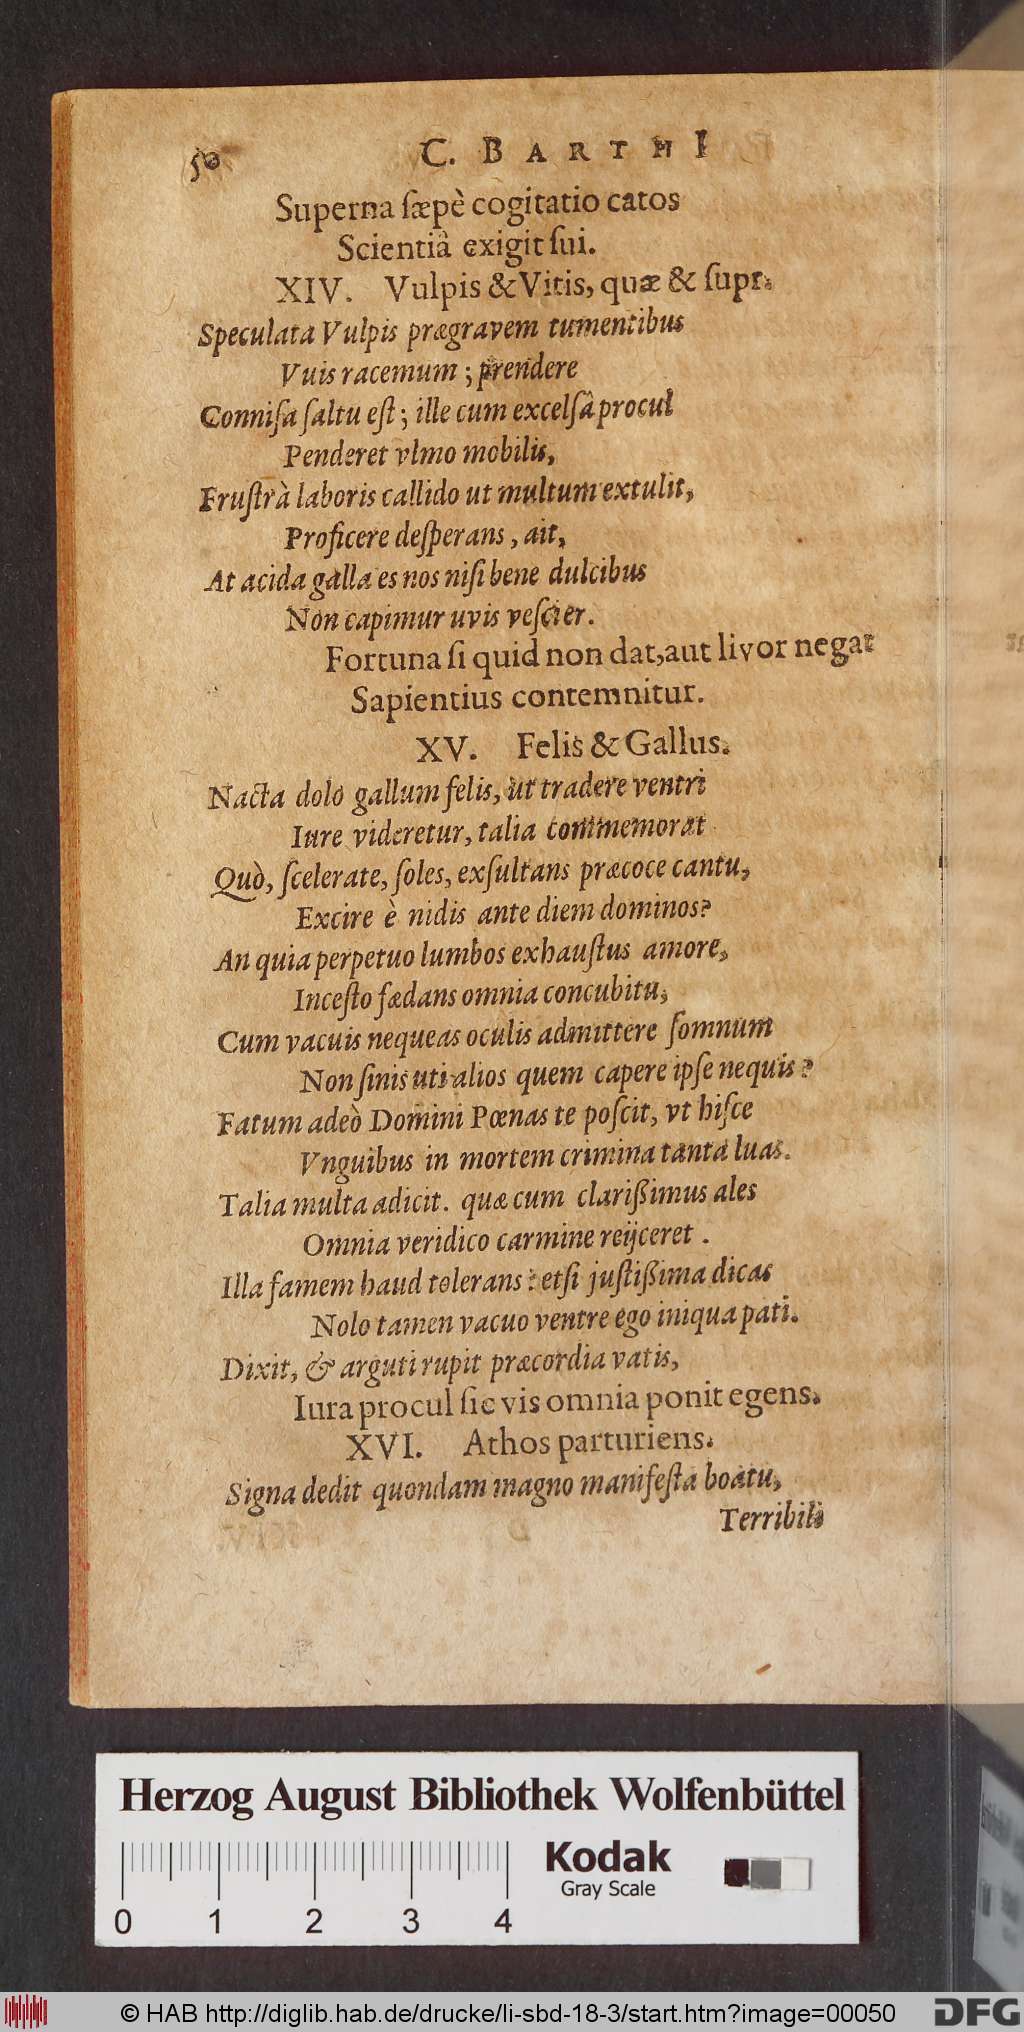 50 C. BARTHI
Superna ſæpè cogitatio catos
Scientiâ exigit ſui.
XIV. Vulpis & Vitis, quæ & ſupr.
Speculata Vulpis prægravem tumentibus
Vuis racemum ; prendere
Conniſa ſaltu eſt ; ille cum excelſâ procul
Penderet vlmo mobilis,
Fruſtrà laboris callido ut multum extulit,
Proficere deſperans, ait,
At acida galla es nos niſi bene dulcibus
Non capimur uvis veſcier.
Fortuna ſi quid non dat, aut livor negat
Sapientius contemnitur.
XV. Felis & Gallus.
Nacta dolo gallum felis, ut tradere ventri
Iure videretur, talia commemorat
Quò, ſcelerate, ſoles, exſultans præcoce cantu,
Excire è nidis ante diem dominos?
An quia perpetuo lumbos exhauſtus amore,
Inceſto fædans omnia concubitu,
Cum vacuis nequeas oculis admittere ſomnum
Non ſinis uti alios quem capere ipſe nequis?
Fatum adeò Domini Pœnas te poſcit, vt hiſce
Vnguibus in mortem crimina tanta luas.
Talia multa adicit. quæ cum clarißimus ales
Omnia veridico carmine reijceret .
Illa famem haud tolerans : etſi juſtißima dicas
Nolo tamen vacuo ventre ego iniqua pati.
Dixit, & arguti rupit præcordia vatis,
Iura procul ſic vis omnia ponit egens.
XVI. Athos parturiens.
Signa dedit quondam magno manifeſta boatu,
Terribili
Herzog August Bibliothek Wolfenbüttel
Kodak
Gray Scale
0 1 2 3 4
© HAB http://diglib.hab.de/drucke/li-sbd-18-3/start.htm?image=00050
DFG